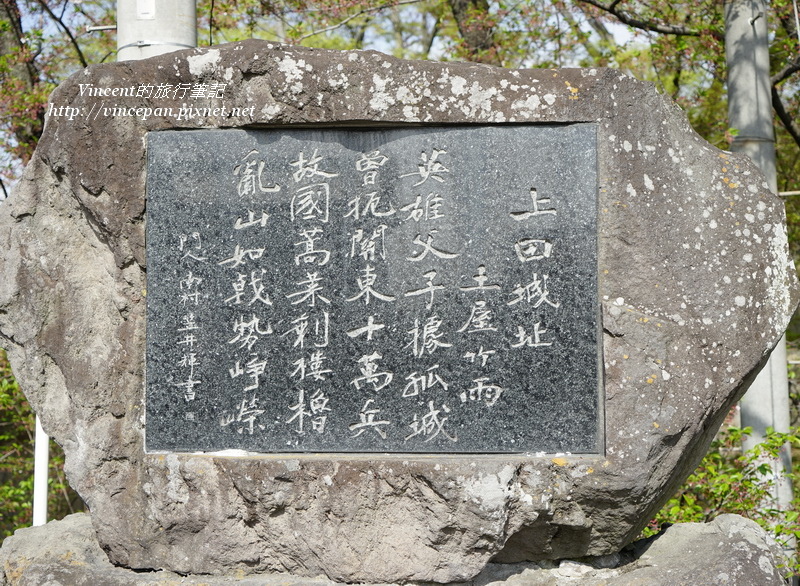 Vincent的旅行筆記
http://vincepan.pixnet.net
上田城址
土屋竹雨
英雄父子據孤城
曾扼關東十萬兵
故國蒿萊剩樓櫓
亂山如戟勢崢嶸
門人 南村 笠井輝書